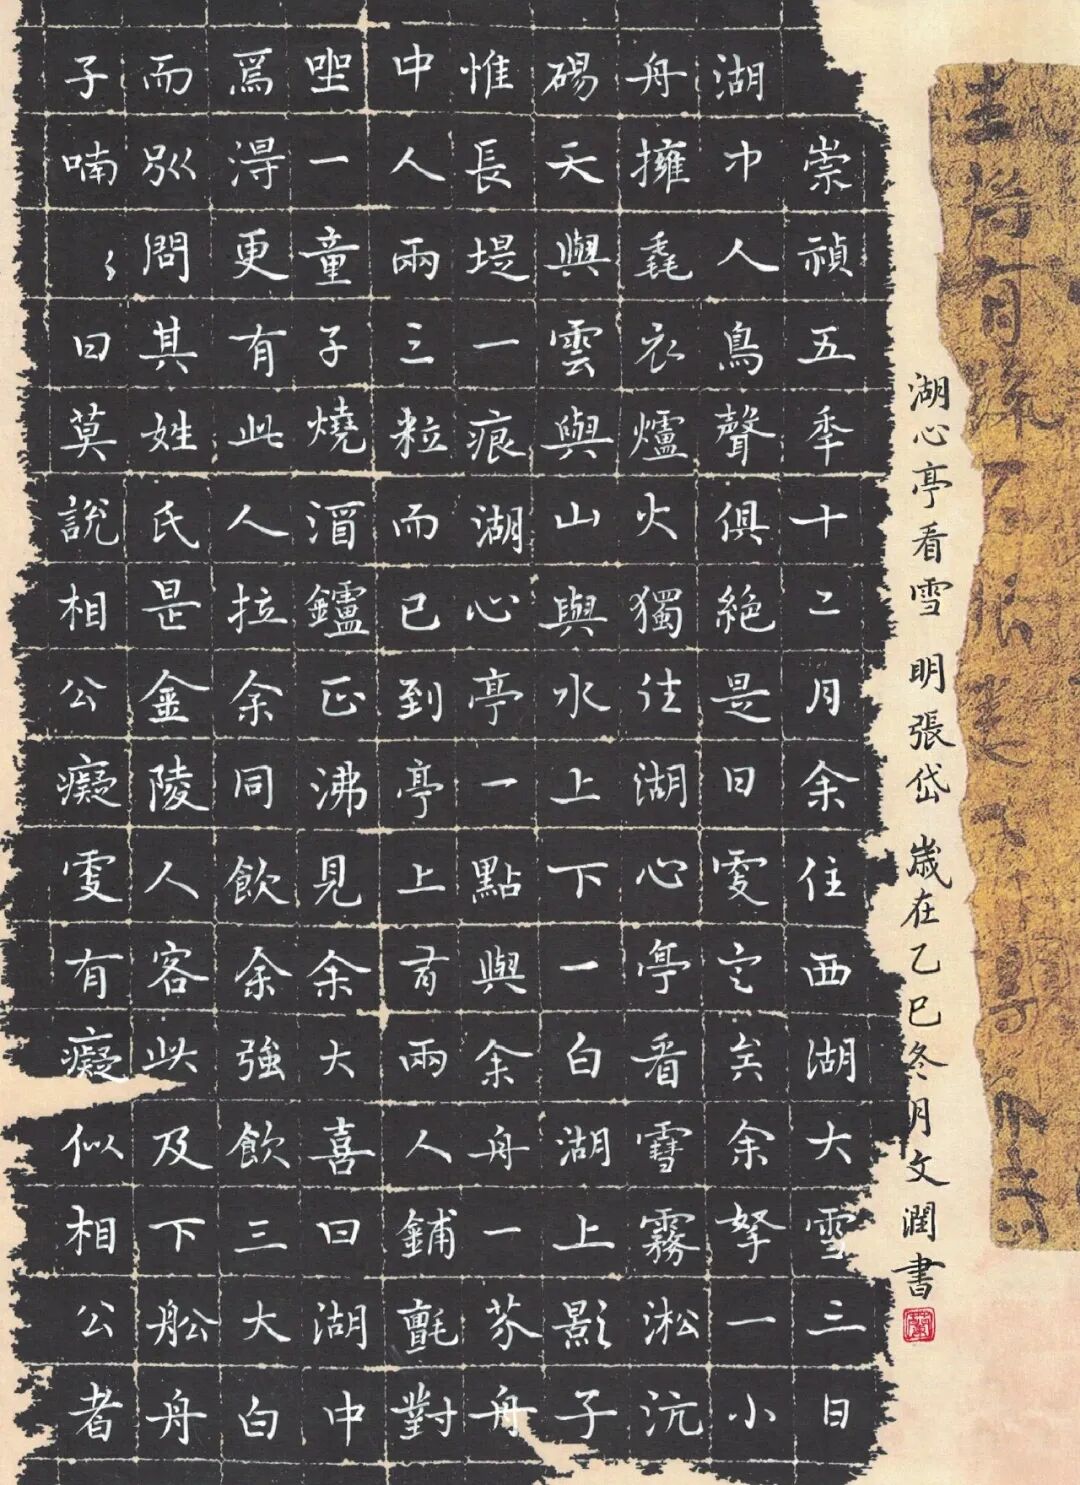 崇禎五秊十二月余住西湖大雪三日
湖中人鳥聲俱絕是日更定矣余拏一小
舟擁毳衣爐火獨往湖心亭看雪霧淞沆
碭天與雲與山與水上下一白湖上影子
惟長堤一痕湖心亭一點與余舟一芥舟
中人兩三粒而已到亭上有兩人鋪氈對
坐一童子燒酒鑪正沸見余大喜曰湖中
焉得更有此人拉余同飲余強飲三大白
而別問其姓氏是金陵人客此及下船舟
子喃〻曰莫說相公癡更有癡似相公者
湖心亭看雪 明張岱 歲在乙巳冬月文潤書